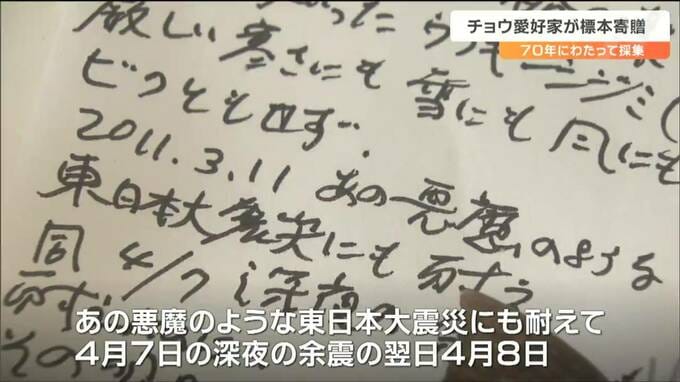 チョウ愛好家が標本寄贈
70年にわたって採集
厳しい寒さにも雪にも風にも
ビクともせず…
2011.3.11 あの悪魔のような
東日本大震災にも耐え
同 4/7 深夜の
あの悪魔のような東日本大震災にも耐えて
4月7日の深夜の余震の翌日4月8日